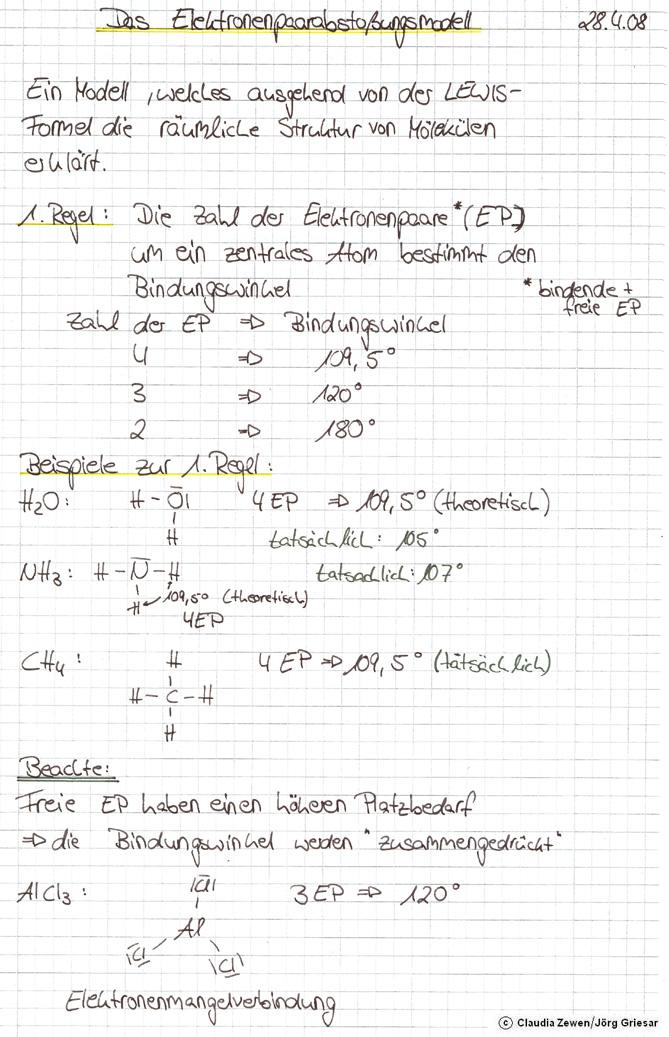 Das Elektronenpaarabstoßungsmodell 28.4.08
Ein Modell, welches ausgehend von der LEWIS-
Formel die räumliche Struktur von Molekülen
erklärt.
1. Regel: Die Zahl der Elektronenpaare* (EP)
um ein zentrales Atom bestimmt den
Bindungswinkel
* bindende +
freie EP
Zahl der EP ⇒ Bindungswinkel
4 ⇒ 109,5°
3 ⇒ 120°
2 ⇒ 180°
Beispiele zur 1. Regel:
H₂O: H - O̅| 4 EP ⇒ 109,5° (theoretisch)
|
H tatsächlich: 105°
NH₃: H - N̅ - H tatsächlich: 107°
|
H 109,5° (theoretisch)
4EP
CH₄: H 4 EP ⇒ 109,5° (tatsächlich)
|
H - C - H
|
H
Beachte:
Freie EP haben einen höheren Platzbedarf
⇒ die Bindungswinkel werden "zusammengedrückt"
AlCl₃: |C̅l| 3 EP ⇒ 120°
|
Al
|C̅l |Cl|
Elektronenmangelverbindung
© Claudia Zewen/Jörg Griesar